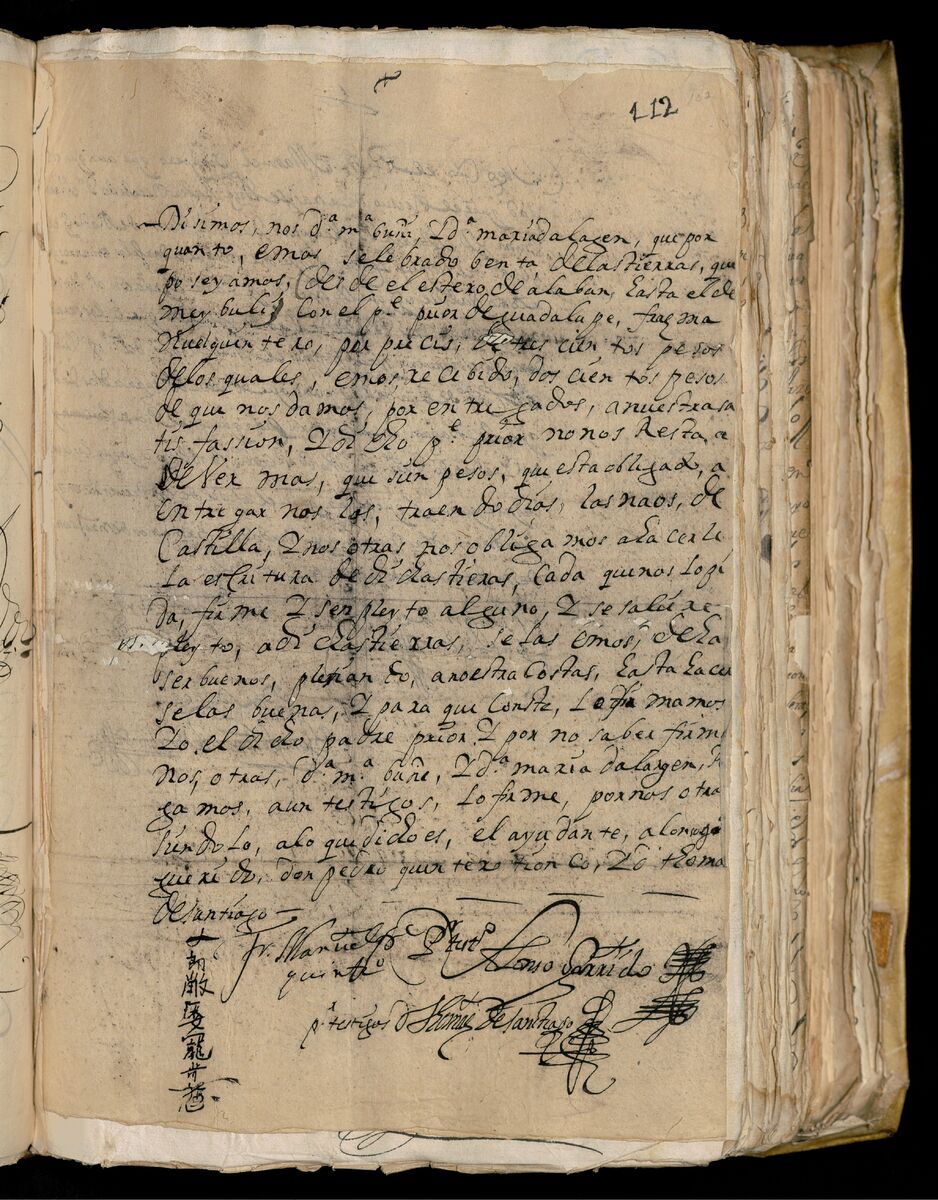 112
Disimos, nos d.ª m.ª buñi, Y d.ª maria dalagen, que por
quanto, emos selebrado benta de las tierras, que
poseyamos, (desde el estero, de alaban, hasta el de
meybuliz) con el p.e prior de guadalupe, fray ma
nuel quintero, por precis, de tres cientos pesos
de los quales, emos, recibido, dos cientos pesos
de que nos damos, por entregados, a nuestra sa
tis fassion, Y di cho p.e prior no nos Resta, a
deVer mas, que sien pesos, que esta obligado, a
entregar nos los, traendo dios, las naos, de
Castilla, Y nosotras nos obligamos a hacerle
la escritura de dichas tieras, Cada que nos lo pi
da, firme Y sen pleyto alguno, Y se saliere
pleyto, a dichas tierras, se las emos, de ha
ser buenos, pleitando, a noestra Costas, hasta hacer
selas buenas, Y para que Conste, Lo firmamos
Yo el dicho padre prior Y por no saber firmar
Nos, otras, d.ª m.ª buñi, Y d.ª maria dalagen, R
gamos, a un testigos, lo firme, por nos otra
siendolo, a lo que dicho es, el ayudante, alonso ga
rrido, don pedro quintero tionco, Y d. thoma
de santiago
Fr. Manuel
quint.o
P.r test.o Alonso Garrido
p.r testigos D. Thomas de Santiago